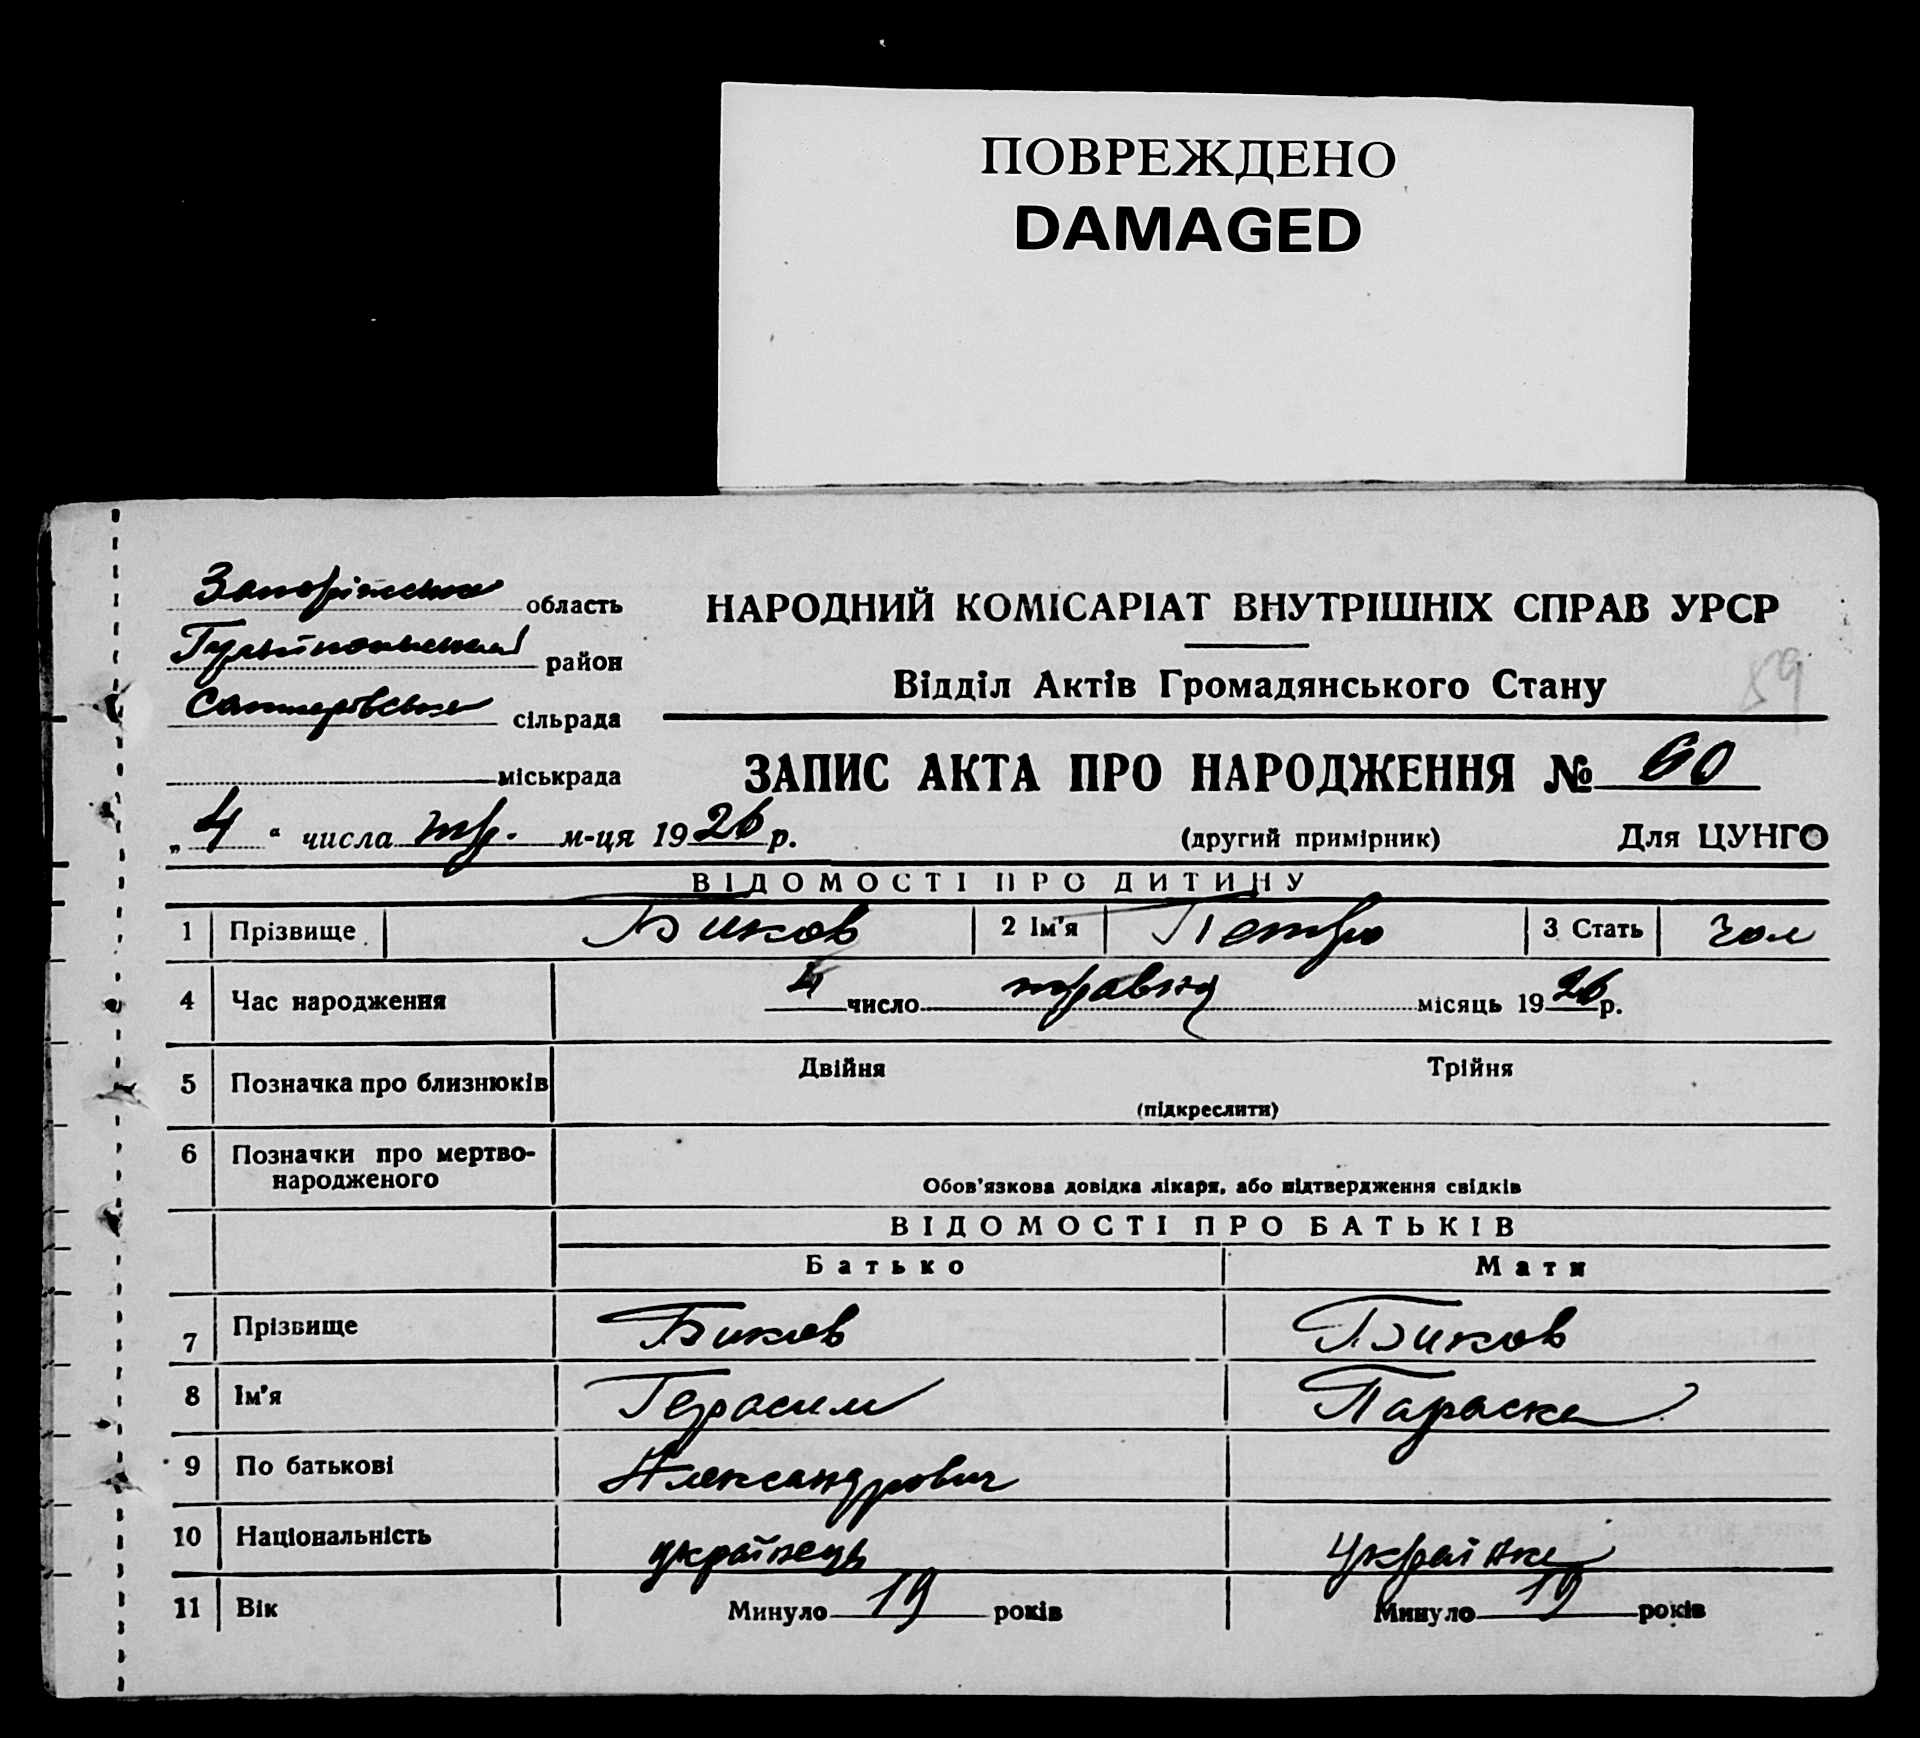 ПОВРЕЖДЕНО
DAMAGED
Запоріжська область
Гуляйпольський район
сільрада
міськрада
НАРОДНИЙ КОМІСАРІАТ ВНУТРІШНІХ СПРАВ УРСР
Відділ Актів Громадянського Стану
59
ЗАПИС АКТА ПРО НАРОДЖЕННЯ № 60
„4“ числа тр. м-ця 1926 р.
(другий примірник) Для ЦУНГО
ВІДОМОСТІ ПРО ДИТИНУ
1 Прізвище Биков 2 Ім'я Петро 3 Стать чол
4 Час народження 4 число травня місяць 1926 р.
5 Позначка про близнюків Двійня Трійня
(підкреслити)
6 Позначки про мертво-
народженого
Обов'язкова довідка лікаря, або підтвердження свідків
ВІДОМОСТІ ПРО БАТЬКІВ
Батько Мати
7 Прізвище Биков Биков
8 Ім'я Герасим Параска
9 По батькові Александрович
10 Національність українець українка
11 Вік Минуло 19 років Минуло 19 років